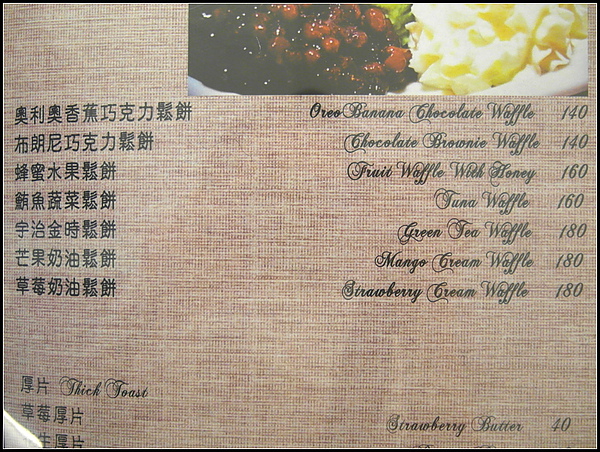 奧利奧香蕉巧克力鬆餅 Oreo Banana Chocolate Waffle 140
布朗尼巧克力鬆餅 Chocolate Brownie Waffle 140
蜂蜜水果鬆餅 Fruit Waffle With Honey 160
鮪魚蔬菜鬆餅 Tuna Waffle 160
宇治金時鬆餅 Green Tea Waffle 180
芒果奶油鬆餅 Mango Cream Waffle 180
草莓奶油鬆餅 Strawberry Cream Waffle 180
厚片 Thick Toast
草莓厚片 Strawberry Butter 40
生厚片